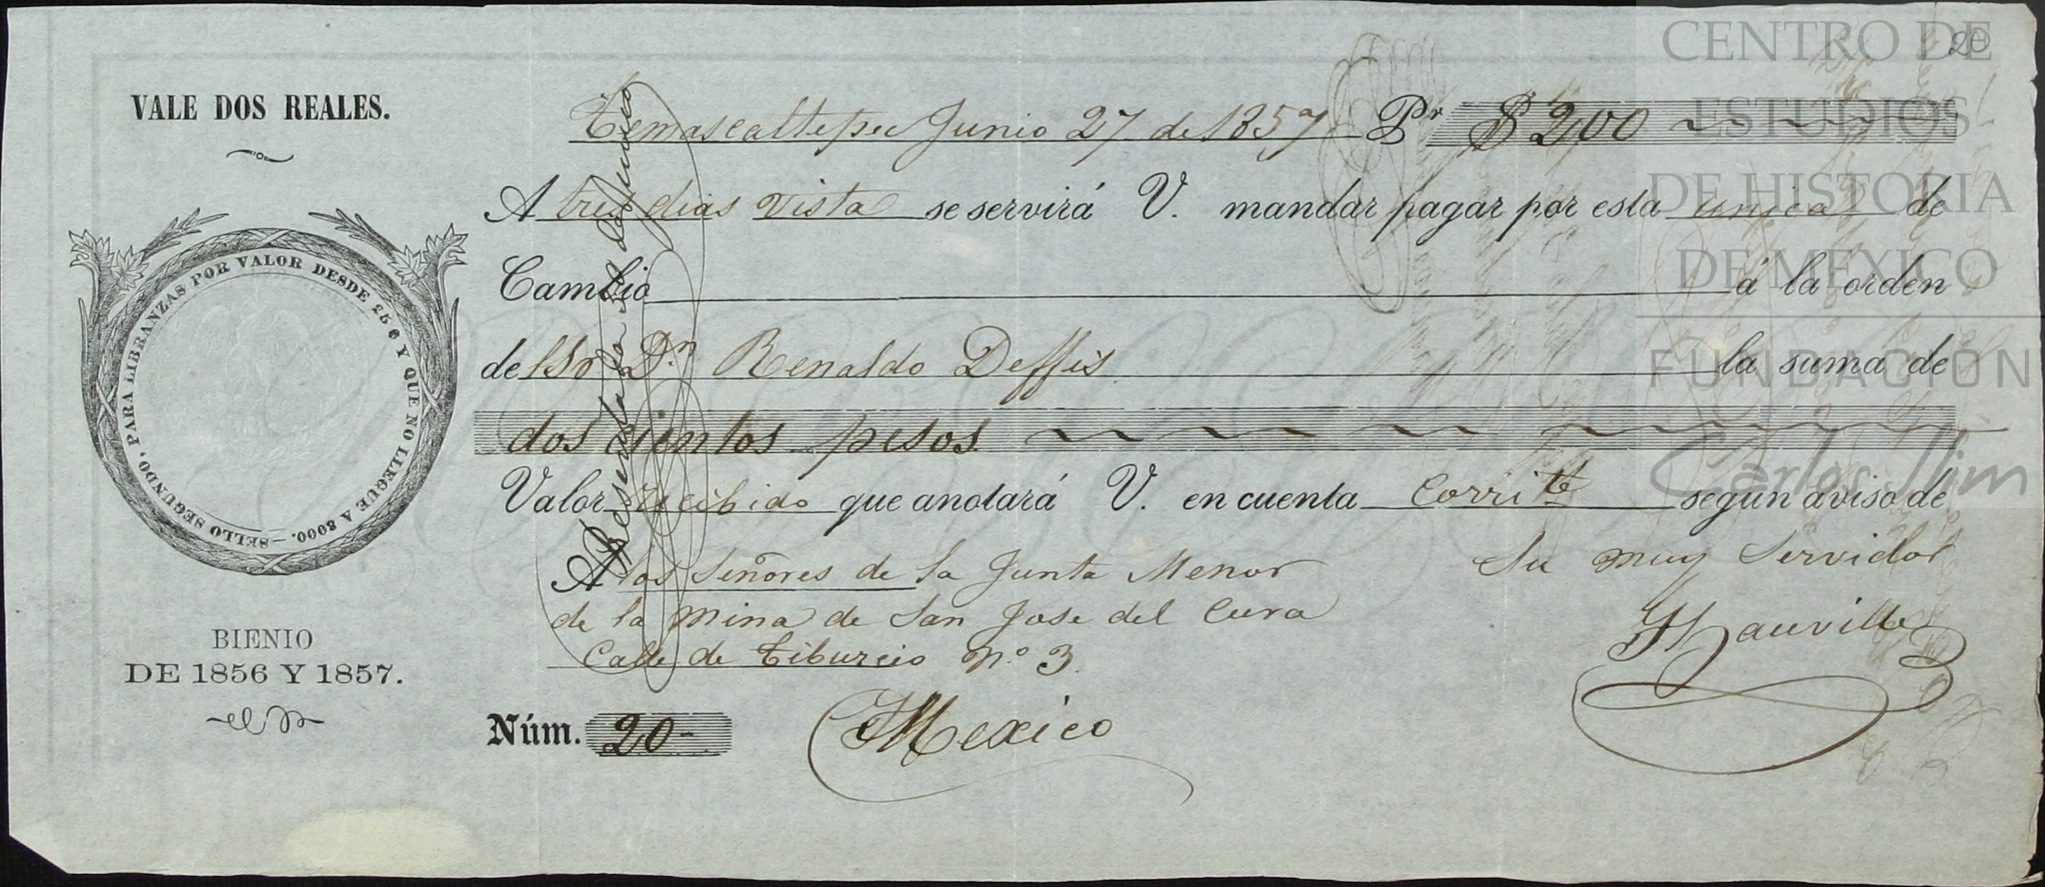 VALE DOS REALES.
SELLO SEGUNDO, PARA LIBRANZAS POR VALOR DESDE 256 Y QUE NO LLEGUE A 3000.—
BIENIO
DE 1856 Y 1857.
20
Temascaltepec Junio 27 de 1857 Pr $ 200
A tres dias vista se servirá V. mandar pagar por esta unica de
Cambio á la orden
del Sr Dn Renaldo Deffis la suma de
dos cientos pesos
Valor recibido que anotará V. en cuenta Corrite segun aviso de
Su muy Servidor
A los Señores de la Junta Menor
de la Mina de San Jose del Cura
Calle de Tiburcio No 3.
Núm. 20- Mexico
CENTRO DE
ESTUDIOS
DE HISTORIA
DE MEXICO
FUNDACIÓN
Carlos Slim